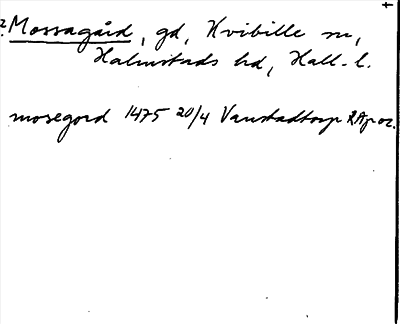 Mossagård, gd, Kvibille sn,
Halmstads hd, Hall. l.
mosegord 1475 20/4 Vanstadtorp RAp or.